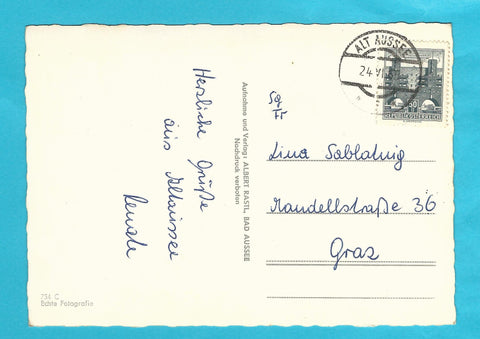 Herzliche Grüße
aus Altaussee
Renate
754 G
Echte Fotografie
Aufnahme und Verlag: ALBERT RASTL, BAD AUSSEE
Nachdruck verboten
ALT AUSSEE
24.VI.
REPUBLIK ÖSTERREICH
Lina Sablatnig
Mandellstraße 36
Graz